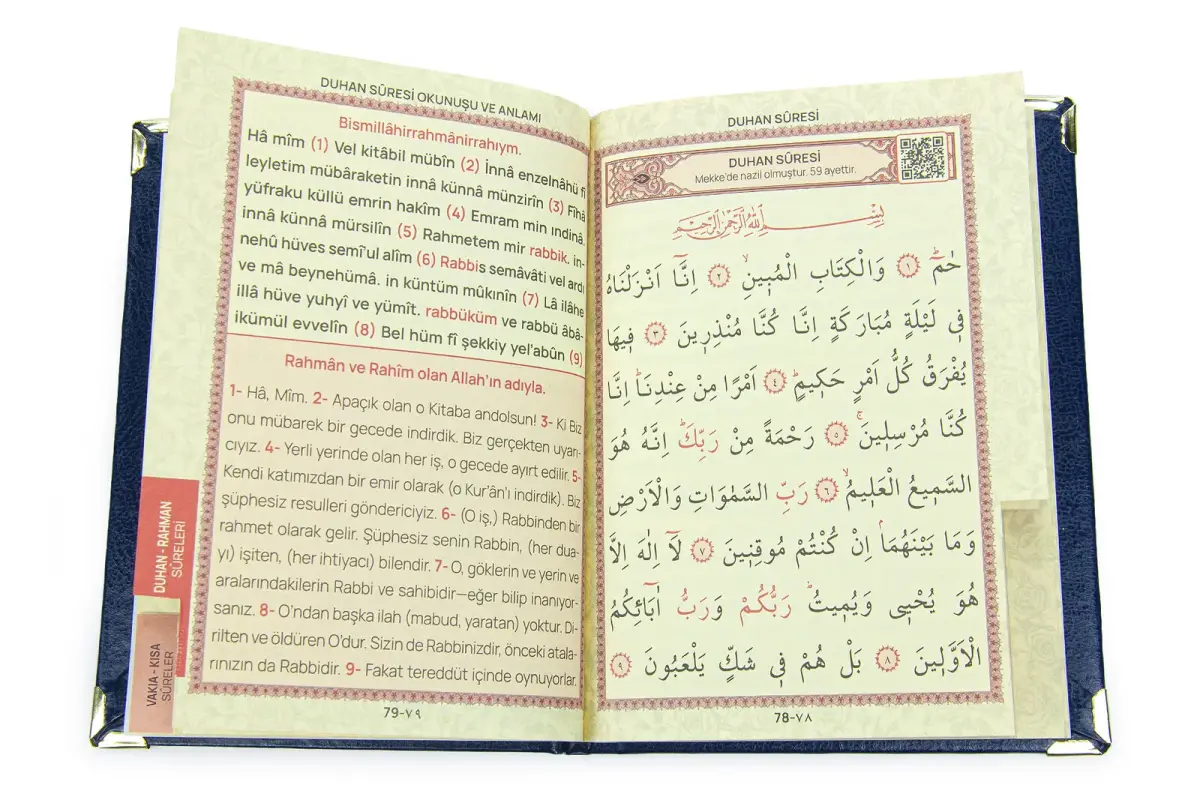 DUHAN SÛRESİ OKUNUŞU VE ANLAMI
Bismillâhirrahmânirrahıym.
Hâ mîm (1) Vel kitâbil mübîn (2) İnnâ enzelnâhü fî
leyletim mübâraketin innâ künnâ münzirîn (3) Fîhâ
yüfraku küllü emrin hakîm (4) Emram min ındinâ,
innâ künnâ mürsilîn (5) Rahmetem mir rabbik, in-
nehû hüves semî'ul alîm (6) Rabbis semâvâti vel ardı
ve mâ beynehümâ. in küntüm mûkınîn (7) Lâ ilâhe
illâ hüve yuhyî ve yümît. rabbüküm ve rabbü âbâ-
ikümül evvelîn (8) Bel hüm fî şekkiy yel'abûn (9)
Rahmân ve Rahîm olan Allah'ın adıyla.
1- Hâ, Mîm. 2- Apaçık olan o Kitaba andolsun! 3- Ki Biz
onu mübarek bir gecede indirdik. Biz gerçekten uyarı-
cıyız. 4- Yerli yerinde olan her iş, o gecede ayırt edilir. 5-
Kendi katımızdan bir emir olarak (o Kur'ân'ı indirdik). Biz
şüphesiz resulleri göndericiyiz. 6- (O iş,) Rabbinden bir
rahmet olarak gelir. Şüphesiz senin Rabbin, (her dua-
yı) işiten, (her ihtiyacı) bilendir. 7- O, göklerin ve yerin ve
aralarındakilerin Rabbi ve sahibidir—eğer bilip inanıyor-
sanız. 8- O'ndan başka ilah (mabud, yaratan) yoktur. Di-
rilten ve öldüren O'dur. Sizin de Rabbinizdir, önceki atala-
rınızın da Rabbidir. 9- Fakat tereddüt içinde oynuyorlar.
79-٧٩
DUHAN - RAHMAN
SÛRELERİ
VAKIA - KISA
SÛRELER
DUHAN SÛRESİ
DUHAN SÛRESİ
Mekke'de nazil olmuştur. 59 ayettir.
بِسْمِ اللّٰهِ الرَّحْمٰنِ الرَّحِيمِ
حٰمٓۜ ﴿١﴾ وَالْكِتَابِ الْمُبٖينِۙ ﴿٢﴾ اِنَّٓا اَنْزَلْنَاهُ
فٖي لَيْلَةٍ مُبَارَكَةٍ اِنَّا كُنَّا مُنْذِرٖينَ ﴿٣﴾ فٖيهَا
يُفْرَقُ كُلُّ اَمْرٍ حَكٖيمٍۜ ﴿٤﴾ اَمْرًا مِنْ عِنْدِنَاۜ اِنَّا
كُنَّا مُرْسِلٖينَۚ ﴿٥﴾ رَحْمَةً مِنْ رَبِّكَۜ اِنَّهُ هُوَ
السَّمٖيعُ الْعَلٖيمُۙ ﴿٦﴾ رَبِّ السَّمٰوَاتِ وَالْاَرْضِ
وَمَا بَيْنَهُمَاۢ اِنْ كُنْتُمْ مُوقِنٖينَ ﴿٧﴾ لَٓا اِلٰهَ اِلَّا
هُوَ يُحْيٖي وَيُمٖيتُۜ رَبُّكُمْ وَرَبُّ اٰبَٓائِكُمُ
الْاَوَّلٖينَ ﴿٨﴾ بَلْ هُمْ فٖي شَكٍّ يَلْعَبُونَ ﴿٩﴾
78-٧٨